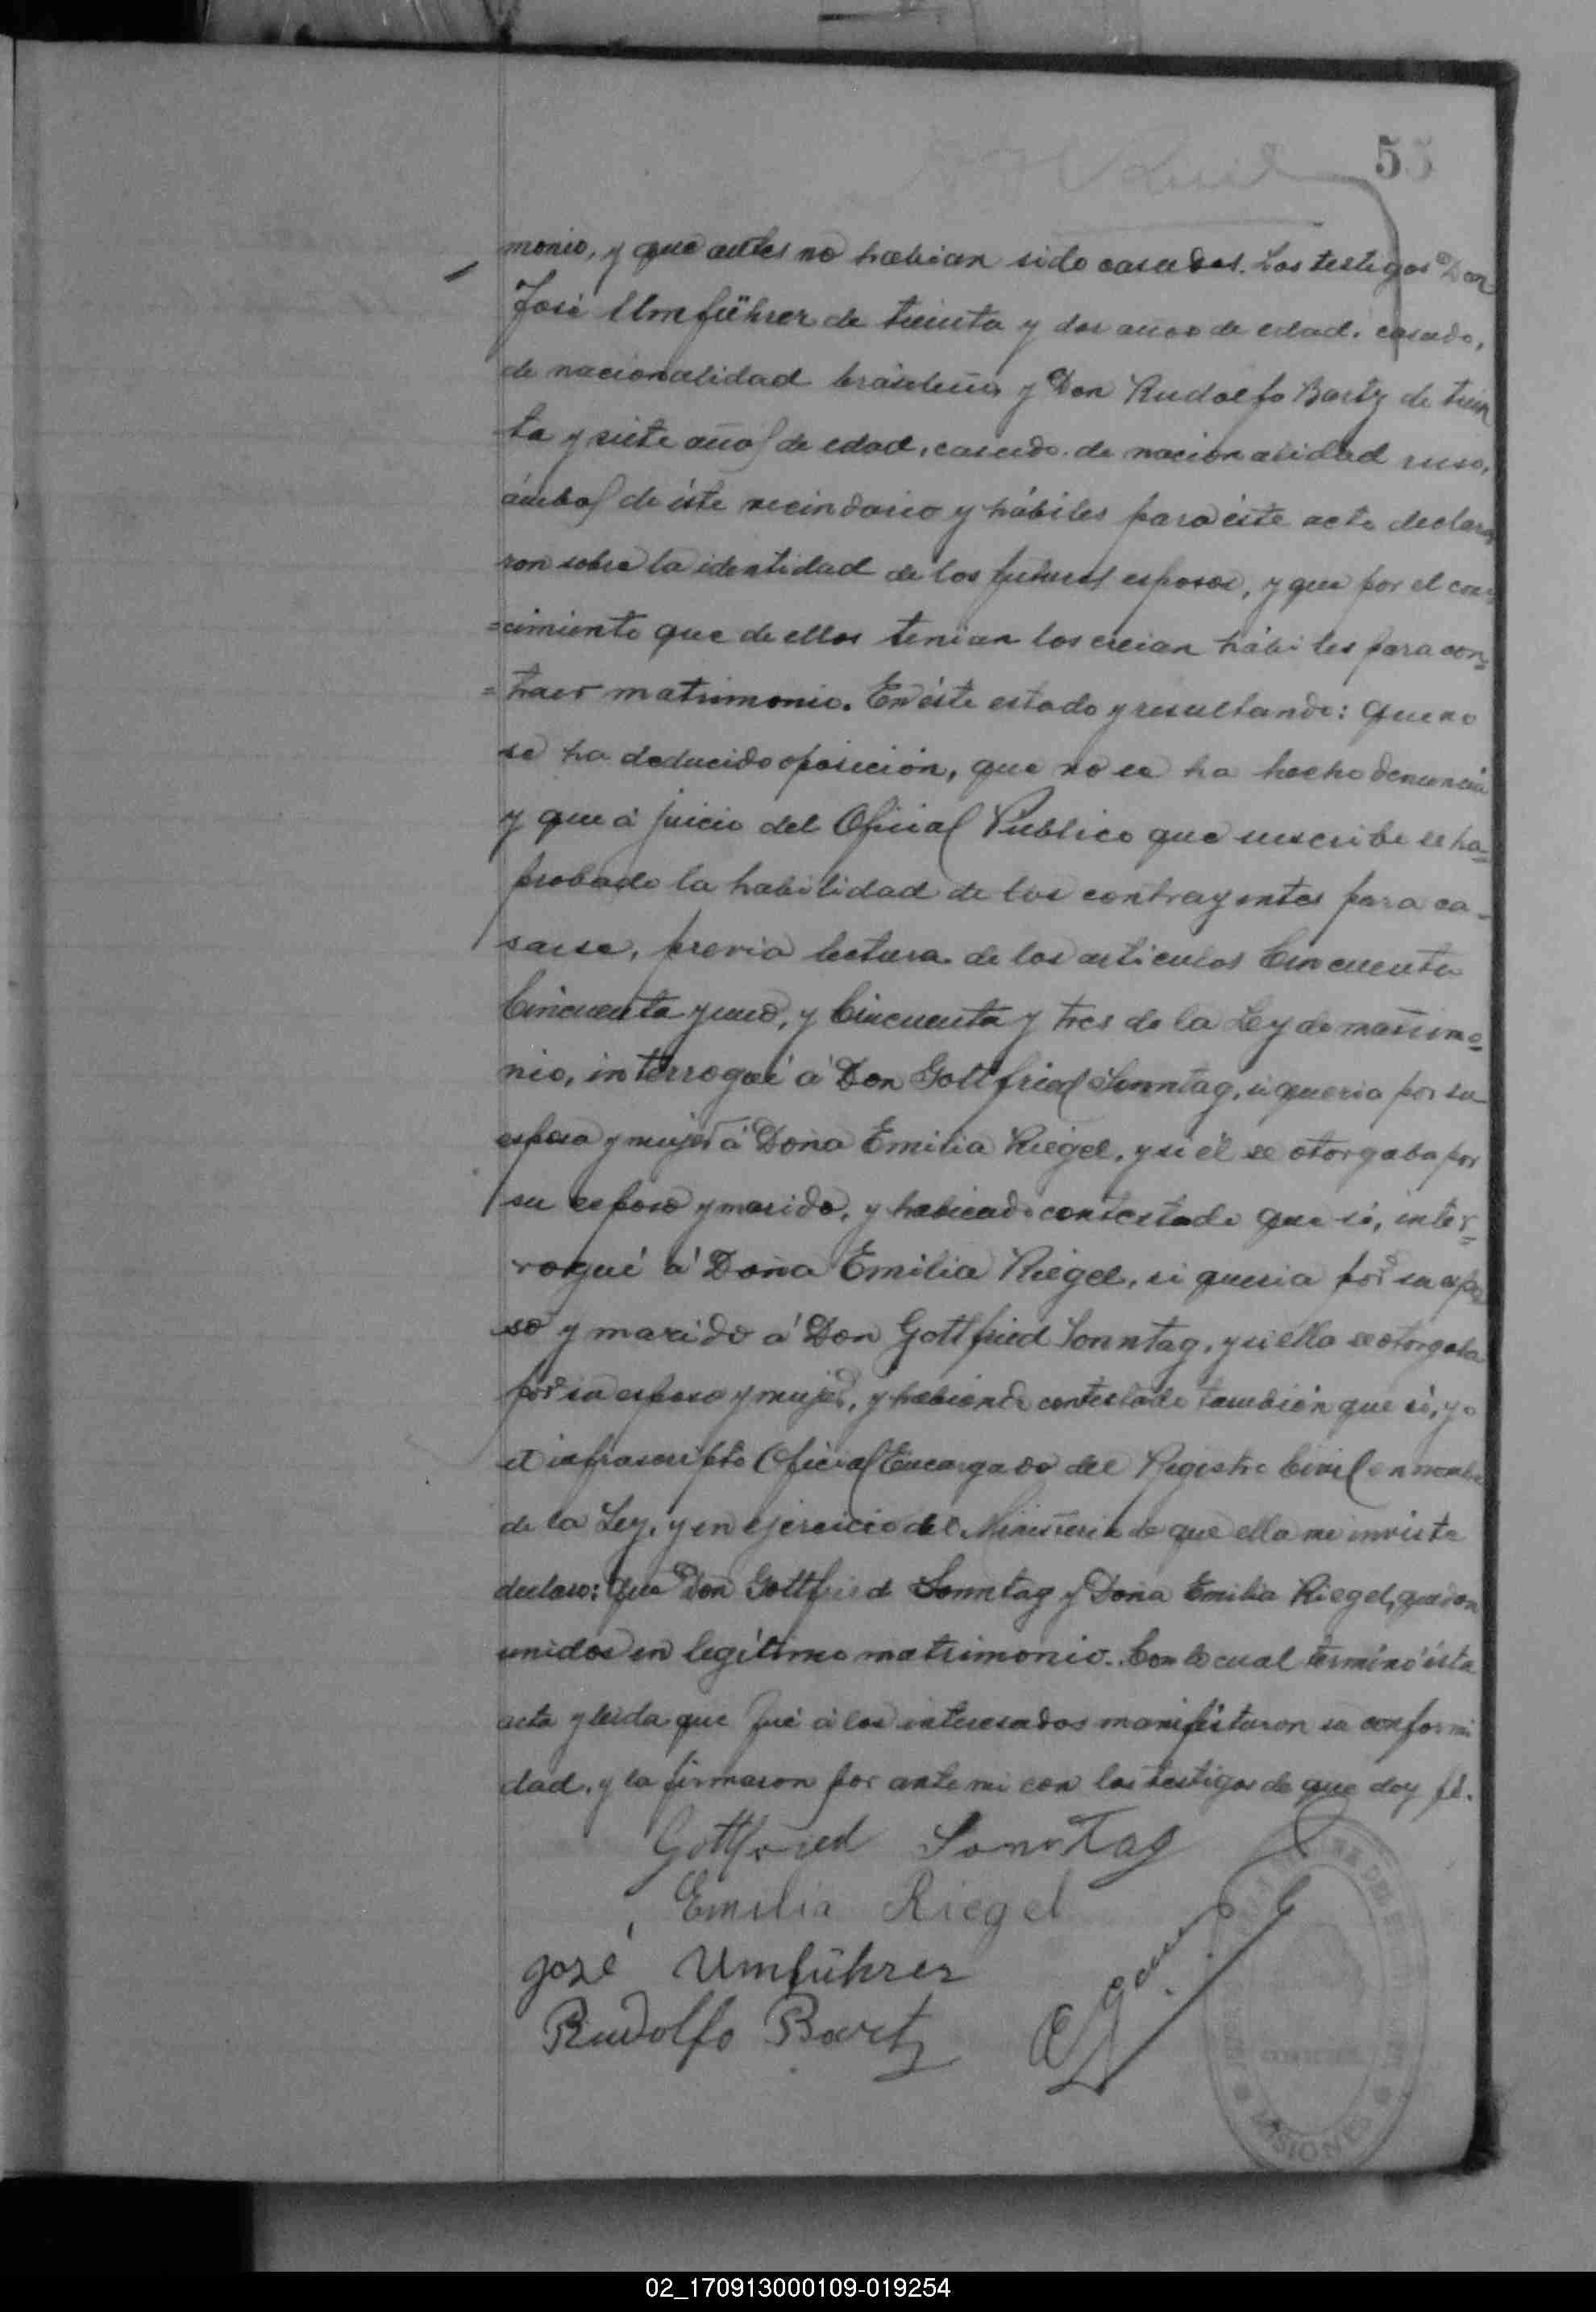 55
monio, y que antes no habian sido casados. Los testigos Don
José Umführer de treinta y dos años de edad, casado,
de nacionalidad brasileña y Don Rudolfo Bartz de trein
ta y siete años de edad, casado, de nacionalidad ruso,
ámbos de éste vecindario y hábiles para éste acto declara
ron sobre la identidad de los futuros esposos, y que por el cono
=cimiento que de ellos tenian los creian hábiles para con=
=traer matrimonio. En éste estado y resultando: Que no
se ha deducido oposición, que no se ha hecho denuncia
y que á juicio del Oficial Publico que suscribe se ha=
probado la habilidad de los contrayentes para ca-
sarse, previa lectura de los articulos Cincuenta
Cincuenta y uno, y Cincuenta y tres de la Ley de matrimo=
nio, interrogué á Don Gottfried Sonntag, si queria por su
esposa y mujer á Doña Emilia Riegel, y si él se otorgaba por
su esposo y marido, y habiendo contestado que si, inter=
rogué á Doña Emilia Riegel, si queria por su espo
so y marido á Don Gottfried Sonntag, y si ella se otorgaba
por su esposa y mujer, y habiendo contestado también que si, yo
el infrascripto Oficial Encargado del Registro Civil en nombre
de la Ley, y en ejercicio del Ministerio de que ella me inviste
declaro: Que Don Gottfried Sonntag y Doña Emilia Riegel, quedan
unidos en legítimo matrimonio. Con lo cual terminó ésta
acta y leida que fué á los interesados manifestaron su conformi
dad, y la firmaron por ante mi con los testigos de que doy fé.
Gottfried Sonntag
Emilia Riegel
José Umführer
Rudolfo Bartz
MISIONES
02_170913000109-019254